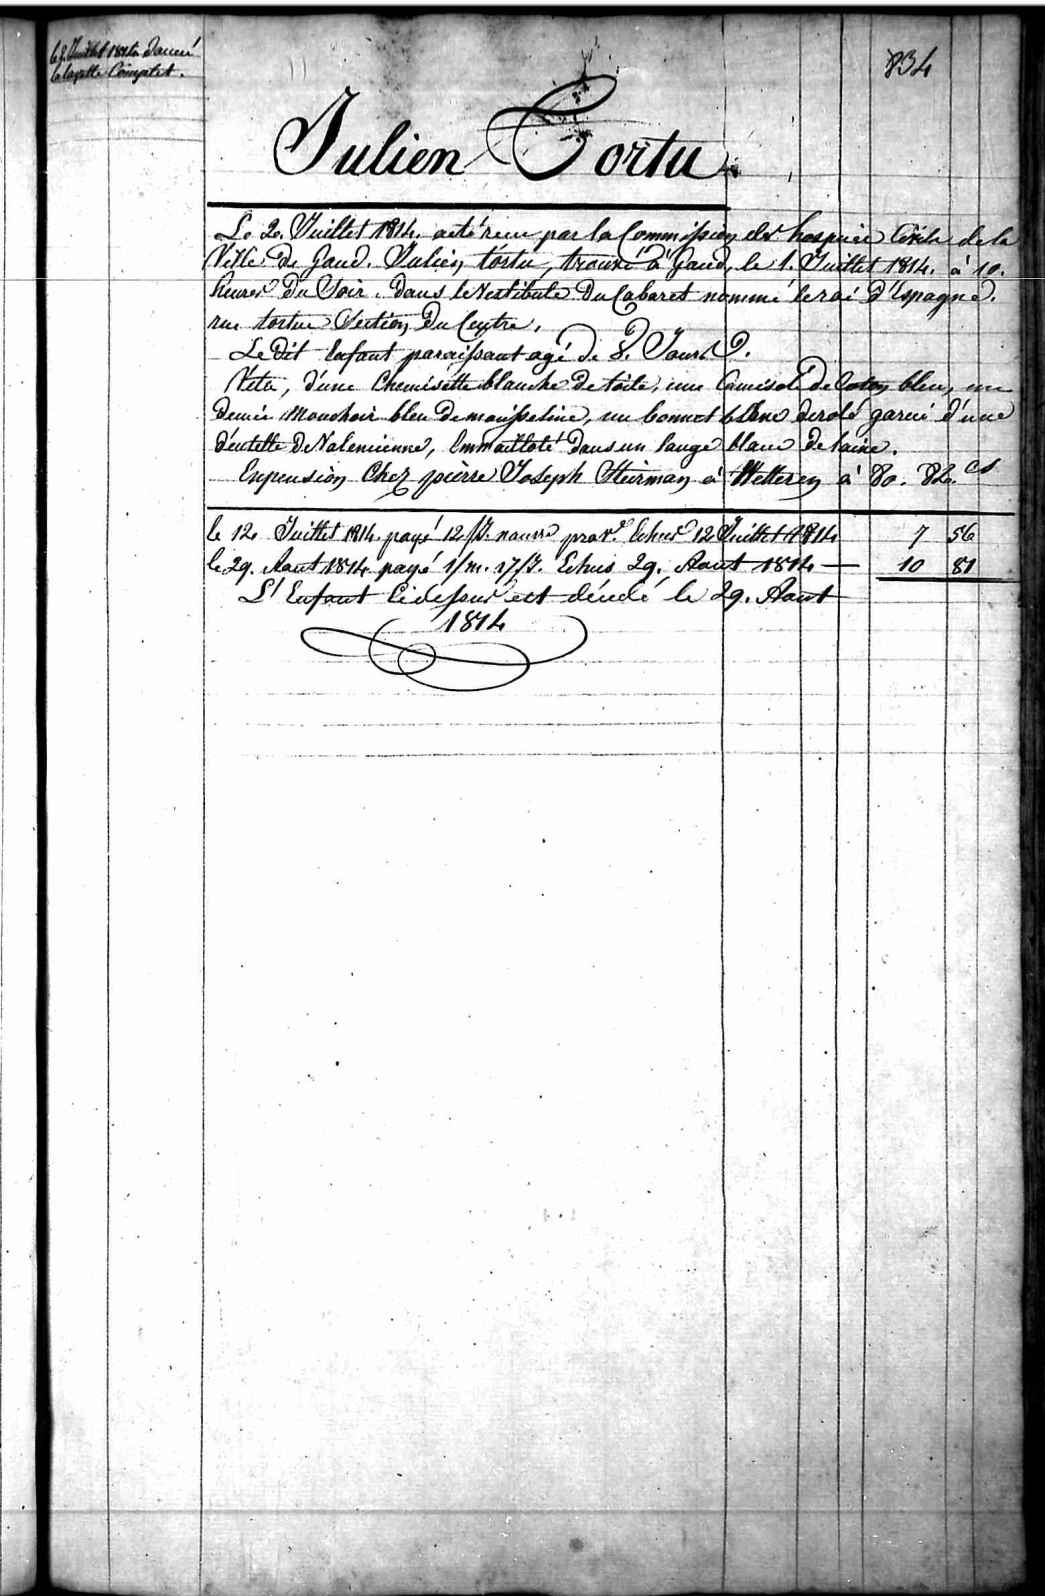 le 8. Juillet 1814 Donné
la layette Complet.
834
Julien Tortu.
Le 2. Juillet 1814. a été recu par la Commission des hospices Civils de la
Ville de Gand. Julien tortu, trouvé à Gand, le 1. Juillet 1814. à 10.
heures du Soir. dans le Vestibule du Cabaret nommé le roi d'Espagne.
rue tortue Section du Centre.
Le dit Enfant paraissant agé de 8. Jours.
Vetu, d'une Chemisette blanche de toile, une Camisol de Coton bleu, un
demie Mouchoir bleu de mousseline, un bonnet blanc garni d'une
déntelle de Valencienne, Emmailloté dans un lange blanc de laine.
Enpension Chez pièrre Joseph Steirman à Wetteren à 80. 82. cs
le 12. Juillet 1814. payé 12/J. nourre prov.e Echus 12 Juillet 1814 7 56
le 29. Aout 1814 payé 1/m. 17/J. Echus 29. Aout 1814 — 10 81
L'Enfant Cidessus est décédé le 29. Aout
1814